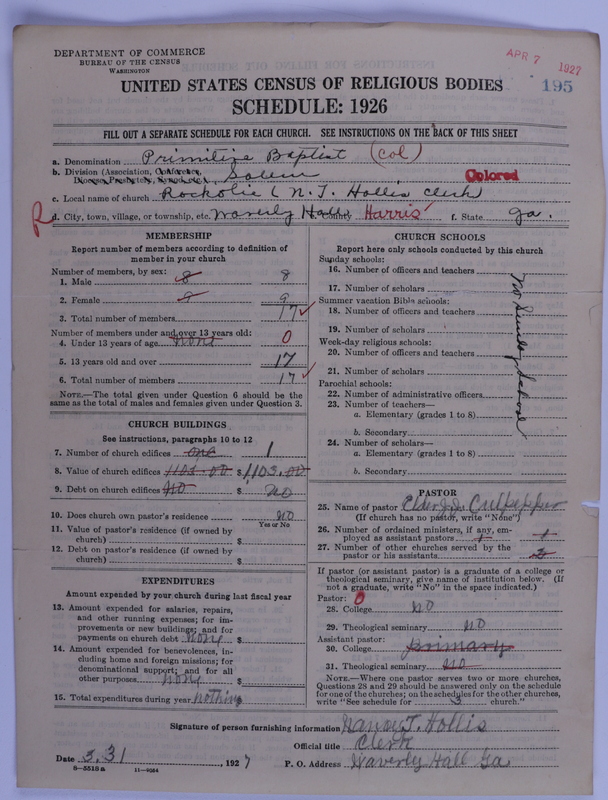 DEPARTMENT OF COMMERCE
BUREAU OF THE CENSUS
WASHINGTON
APR 7 1927
195
UNITED STATES CENSUS OF RELIGIOUS BODIES
SCHEDULE: 1926
FILL OUT A SEPARATE SCHEDULE FOR EACH CHURCH. SEE INSTRUCTIONS ON THE BACK OF THIS SHEET
a. Denomination Primitive Baptist (Col)
b. Division (Association, Conference, Diocese, Presbytery, Synod, etc.) Salem Colored
c. Local name of church Rockolie (N. J. Hollis clerk
R d. City, town, village, or township, etc. Waverly Hall e. County Harris f. State Ga.
MEMBERSHIP
Report number of members according to definition of member in your church
Number of members, by sex:
1. Male 8 8
2. Female 9 9
3. Total number of members 17
Number of members under and over 13 years old:
4. Under 13 years of age none 0
5. 13 years old and over 17
6. Total number of members 17
NOTE.—The total given under Question 6 should be the
same as the total of males and females given under Question 3.
CHURCH BUILDINGS
See instructions, paragraphs 10 to 12
7. Number of church edifices one 1
8. Value of church edifices 1103.00 $1,103.00
9. Debt on church edifices No $ no
10. Does church own pastor's residence no
Yes or No
11. Value of pastor's residence (if owned by
church) $
12. Debt on pastor's residence (if owned by
church) $
EXPENDITURES
Amount expended by your church during last fiscal year
13. Amount expended for salaries, repairs,
and other running expenses; for im-
provements or new buildings; and for
payments on church debt none $
14. Amount expended for benevolences, in-
cluding home and foreign missions; for
denominational support; and for all
other purposes none $
15. Total expenditures during year nothing
CHURCH SCHOOLS
Report here only schools conducted by this church
Sunday schools:
16. Number of officers and teachers
17. Number of scholars
Summer vacation Bible schools:
18. Number of officers and teachers
19. Number of scholars
Week-day religious schools:
20. Number of officers and teachers
21. Number of scholars
Parochial schools:
22. Number of administrative officers
23. Number of teachers—
a. Elementary (grades 1 to 8)
b. Secondary
24. Number of scholars—
a. Elementary (grades 1 to 8)
b. Secondary
No Sunday School
PASTOR
25. Name of pastor Elder J. J. Culpepper
(If church has no pastor, write "None")
26. Number of ordained ministers, if any, em-
ployed as assistant pastors 1 1
27. Number of other churches served by the
pastor or his assistants 2
If pastor (or assistant pastor) is a graduate of a college or
theological seminary, give name of institution below. (If
not a graduate, write "No" in the space indicated.)
Pastor: 0
28. College No
29. Theological seminary No
Assistant pastor:
30. College primary
31. Theological seminary No
NOTE.—Where one pastor serves two or more churches,
Questions 28 and 29 should be answered only on the schedule
for one of the churches; on the schedules for the other churches,
write "See schedule for 3 church."
Signature of person furnishing information Nancy J. Hollis
Official title Clerk
Date 3.31, 1927 P. O. Address Waverly Hall Ga
8—5518a 11—9064